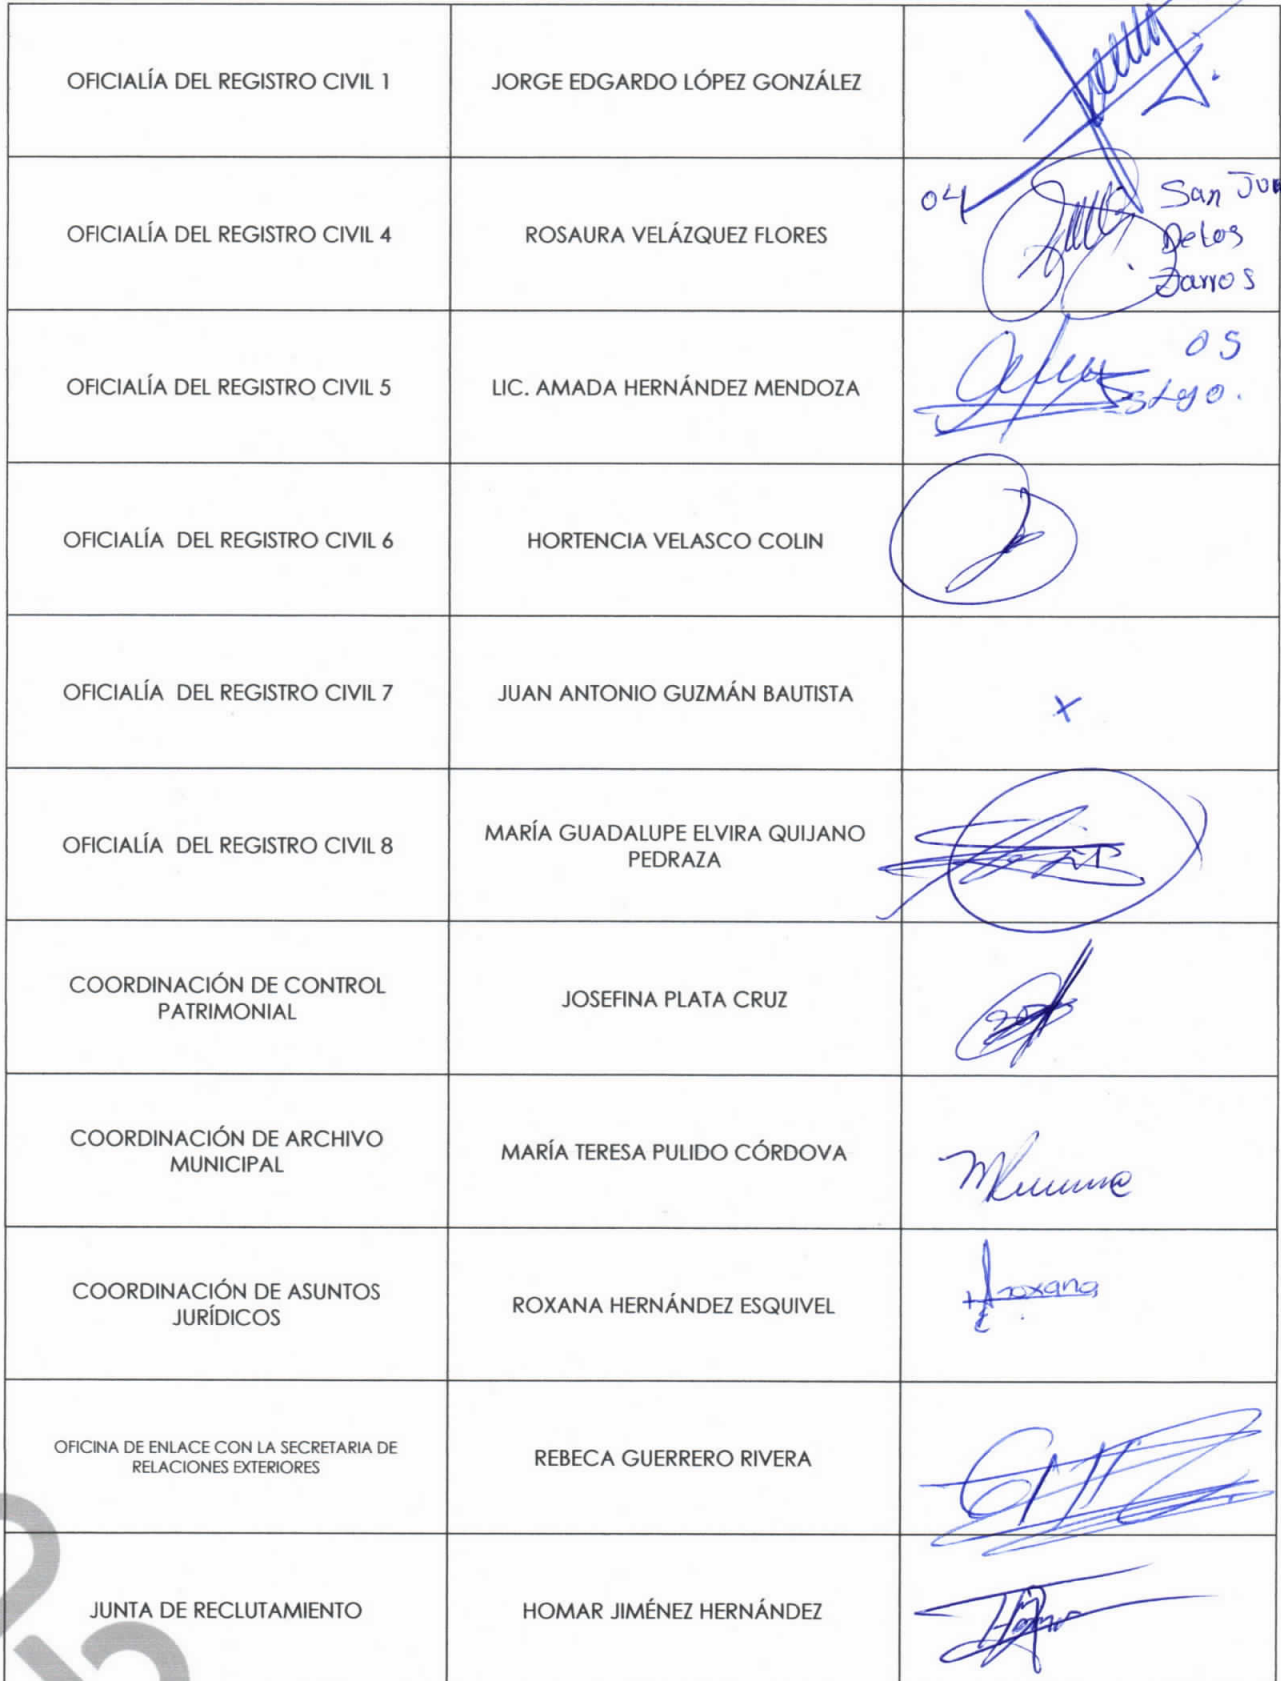 OFICIALÍA DEL REGISTRO CIVIL 1
JORGE EDGARDO LÓPEZ GONZÁLEZ
OFICIALÍA DEL REGISTRO CIVIL 4
ROSAURA VELÁZQUEZ FLORES
04
San
De Los
Jarros
OFICIALÍA DEL REGISTRO CIVIL 5
LIC. AMADA HERNÁNDEZ MENDOZA
05
Stgo.
OFICIALÍA DEL REGISTRO CIVIL 6
HORTENCIA VELASCO COLIN
OFICIALÍA DEL REGISTRO CIVIL 7
JUAN ANTONIO GUZMÁN BAUTISTA
x
OFICIALÍA DEL REGISTRO CIVIL 8
MARÍA GUADALUPE ELVIRA QUIJANO
PEDRAZA
COORDINACIÓN DE CONTROL
PATRIMONIAL
JOSEFINA PLATA CRUZ
COORDINACIÓN DE ARCHIVO
MUNICIPAL
MARÍA TERESA PULIDO CÓRDOVA
COORDINACIÓN DE ASUNTOS
JURÍDICOS
ROXANA HERNÁNDEZ ESQUIVEL
roxana
OFICINA DE ENLACE CON LA SECRETARIA DE
RELACIONES EXTERIORES
REBECA GUERRERO RIVERA
JUNTA DE RECLUTAMIENTO
HOMAR JIMÉNEZ HERNÁNDEZ